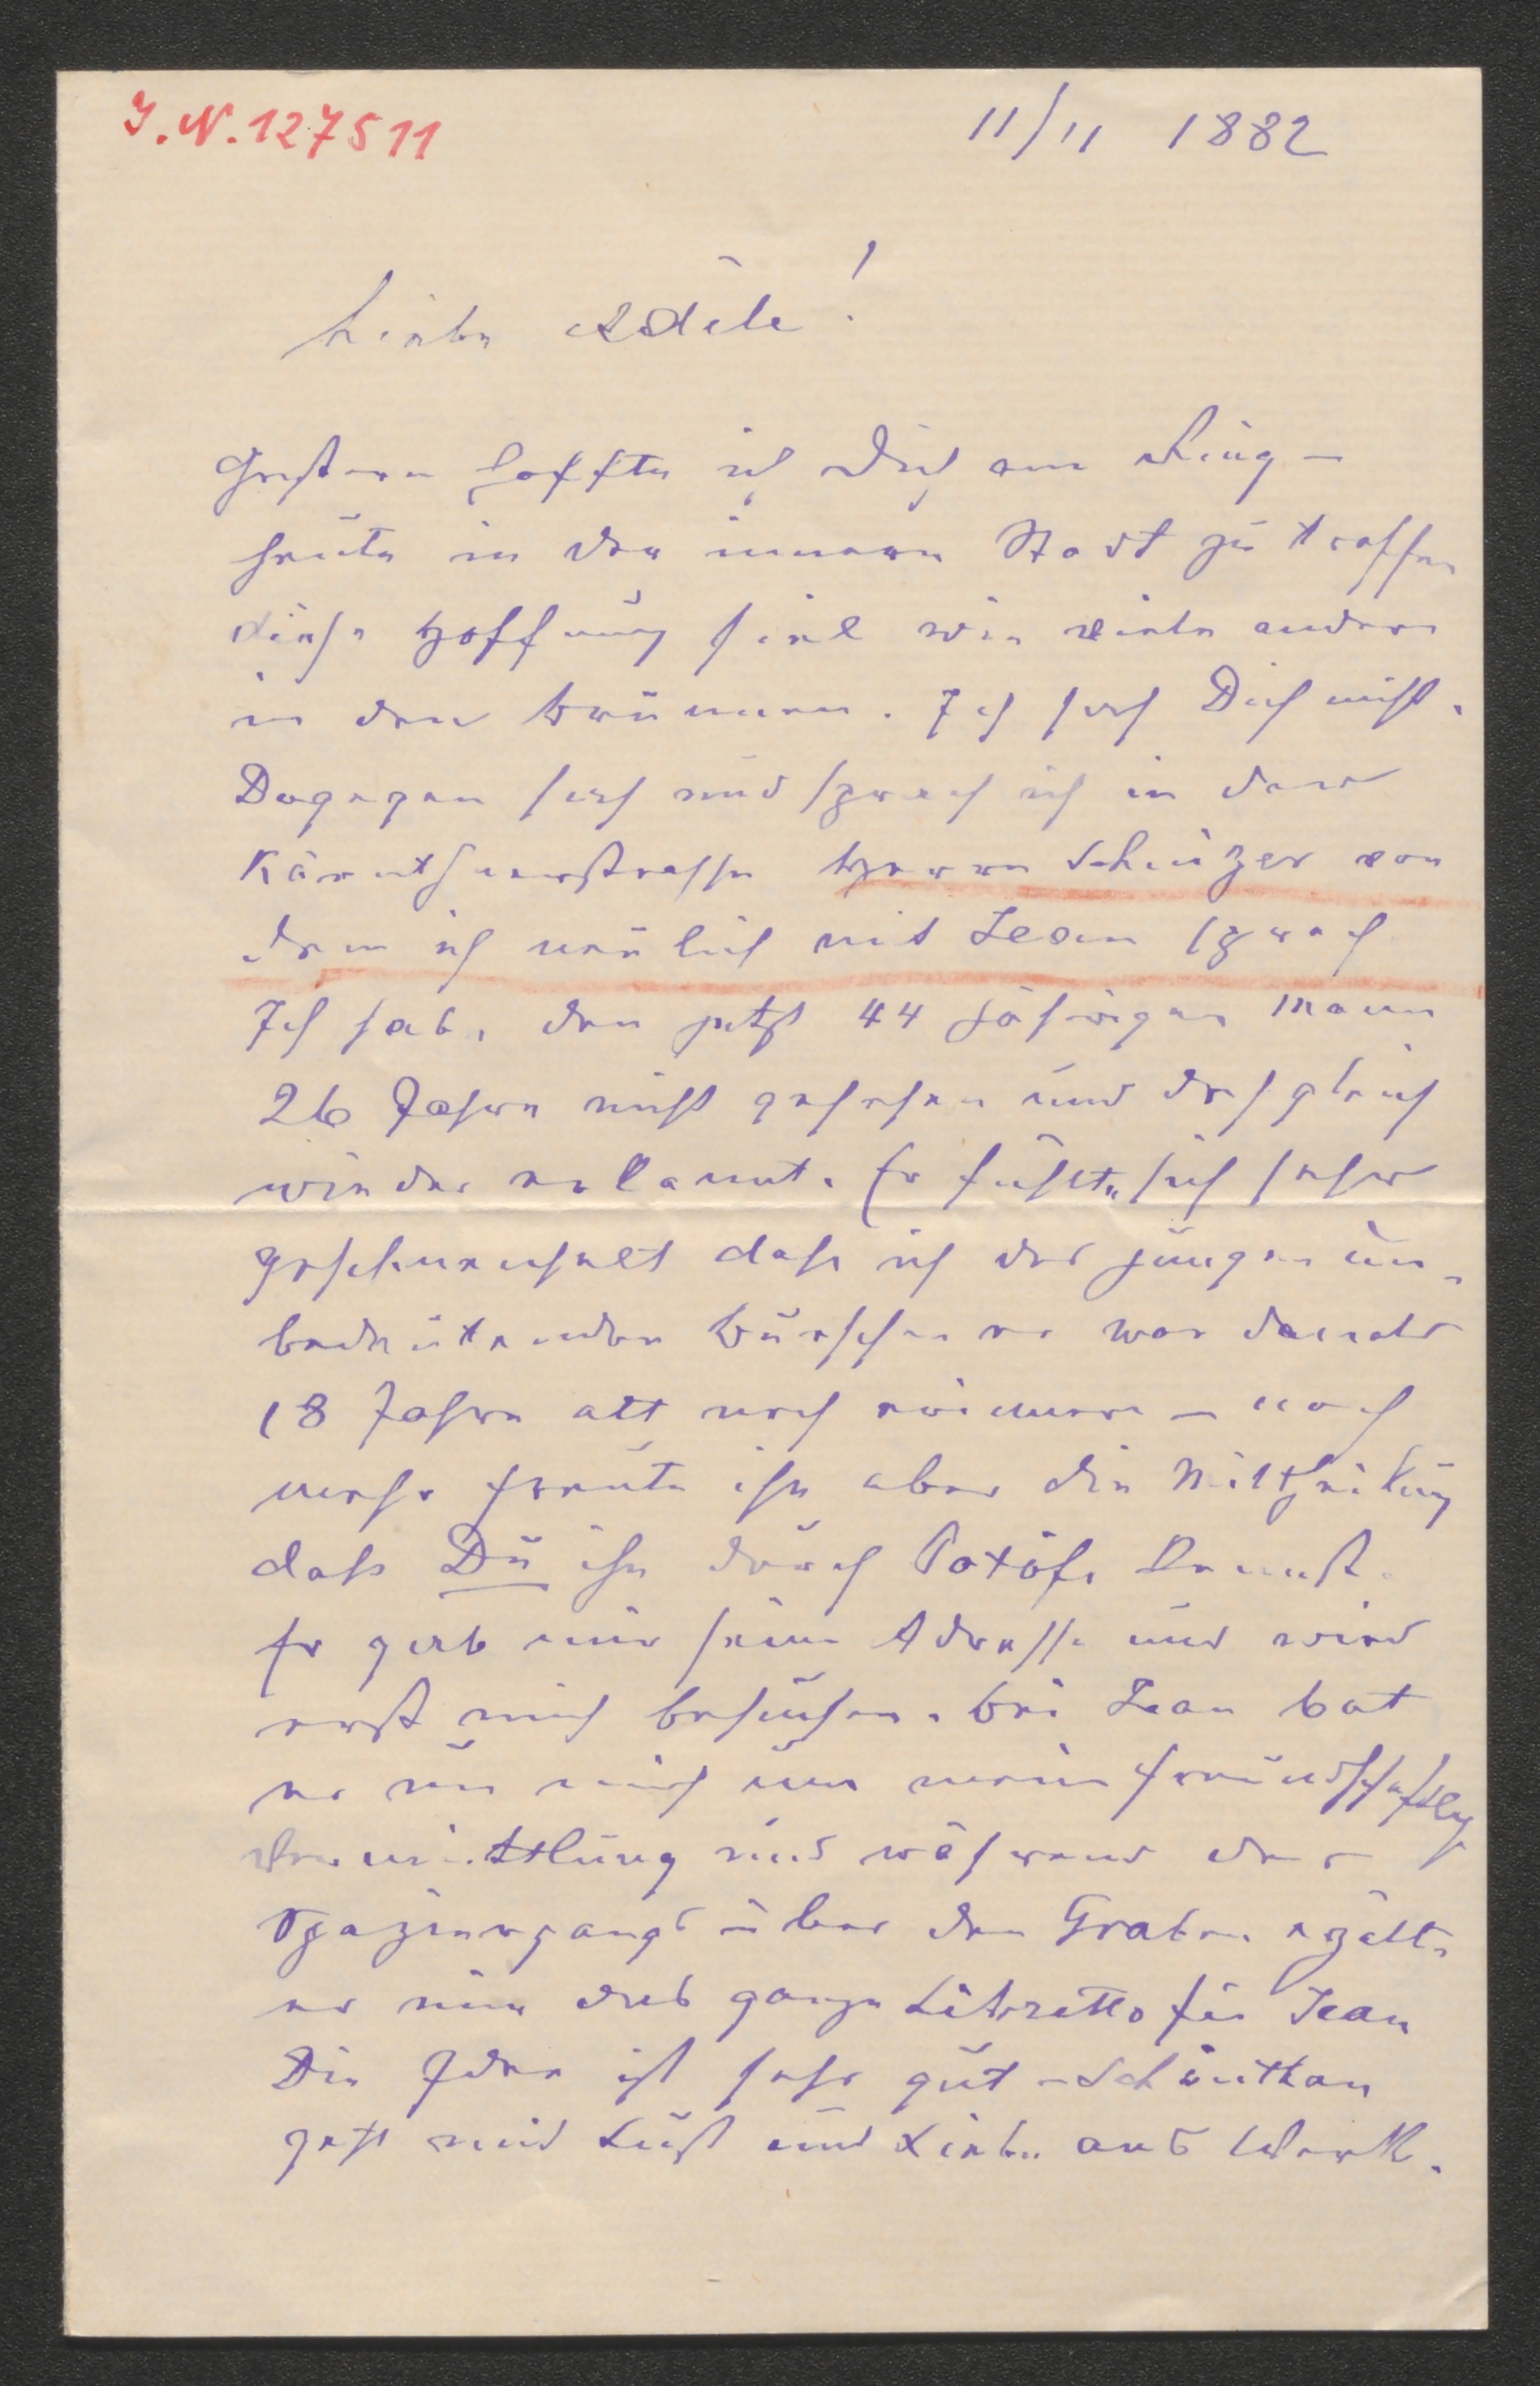 J.N. 127511
11/11 1882
Liebe Adèle!
Gestern hoffte ich Dich am Ring –
heute in der innern Stadt zu treffen
diese Hoffnung fiel wie viele andere
in den Brunnen. Ich sah Dich nicht.
Dagegen sah und sprach ich in der
Kärnthnerstrasse Herrn Schnizer von
dem ich neulich mit Jean sprach
Ich habe den jetzt 44 jährigen Mann
26 Jahre nicht gesehen und doch gleich
wieder erkannt. Er fühlte sich sehr
geschmeichelt dass ich des jungen un-
bedeutenden Burschen er war damals
18 Jahre alt noch erinnere – noch
mehr freute ihn aber die Mittheilung
dass Du ihn durch Potöfi kennst.
Er gab mir seine Adresse und wird
erst mich besuchen. Bei Jean bat
er um mich um meine freundschaftlich
Vermittlung und während des
Spaziergangs über den Graben erzälte
er mir das ganze Libretto für Jean
Die Idee ist sehr gut – Schönthan
geht mit Lust und Liebe ans Werk.